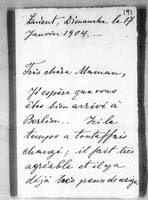 191
Lorient, Dimanche le 17
Janvier 1904.—
Très chère Maman,
J'espère que vous
êtes bien arrivé à
Ici le
temps a tout à fait
changé, il fait très
agréable et il y a
déjà très peu de neige